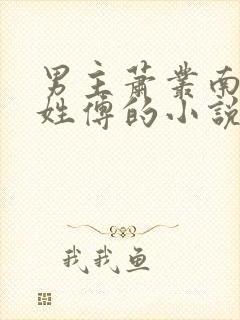 男主萧业南
姓傅的小說
我我鱼